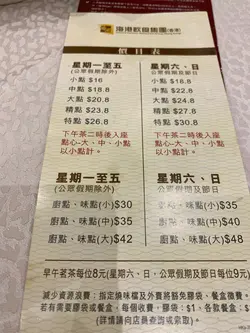 海港飲食集團(香港)
價目表
星期一至五
(公眾假期除外)
小點 $16
中點 $18.8
大點 $20.8
精點 $23.8
特點 $26.8
下午茶二時後入座
點心-大、中、小點
以小點計。
星期六、日
公眾假期及節日
小點 $18.8
中點 $22.8
大點 $24.8
精點 $27.8
特點 $30.8
下午茶二時後入座
點心-大、中、小點
以小點計。
星期一至五
(公眾假期除外)
廚點、味點(小)$30
廚點、味點(中)$35
廚點、味點(大)$42
星期六、日
公眾假期及節日
廚點、味點(小)$35
廚點、味點(中)$40
廚點、味點(大)$48
早午茗茶每位8元(星期六、日,公眾假期及節日每位9元)
減少資源浪費:指定燒味檔及外賣將豁免膠袋、餐盒徵費。
若有需要膠袋或餐盒,每個收費,膠袋:$1、各款餐盒:$
(詳情請向店員查詢或索取)